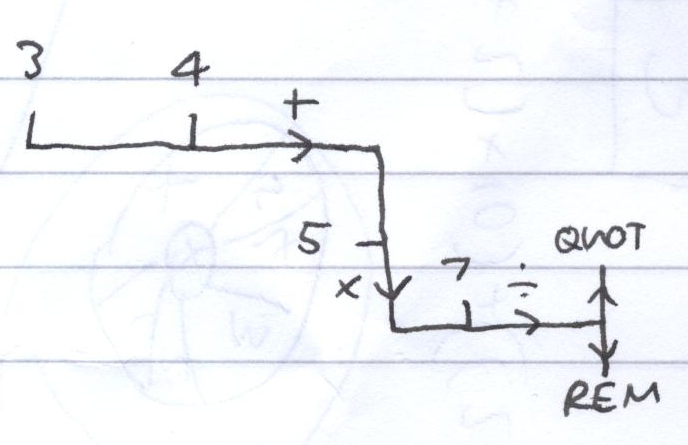 3 4 +
5
×
7 ÷ QUOT
REM